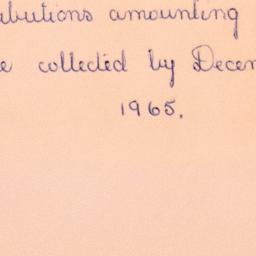 ibutions amounting
e collected by Decem
1965.